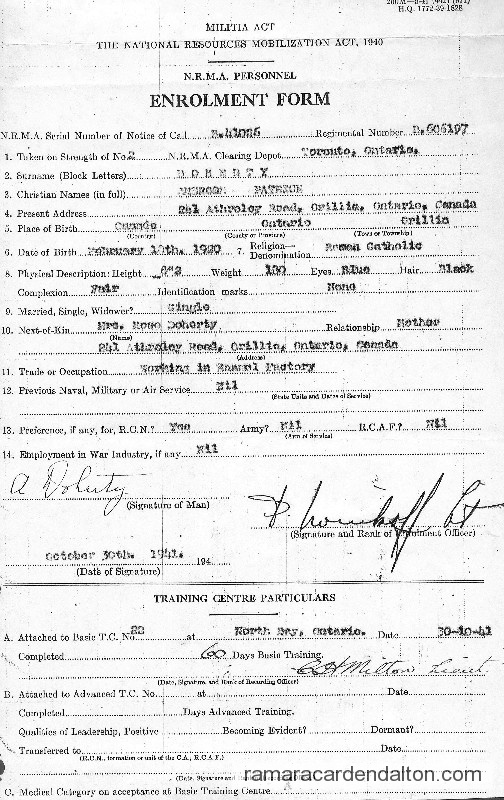 H.Q. 1772-39-1828
MILITIA ACT
THE NATIONAL RESOURCES MOBILIZATION ACT, 1940
N.R.M.A. PERSONNEL
ENROLMENT FORM
N.R.M.A. Serial Number of Notice of Call Regimental Number B.606197
1. Taken on Strength of No. 2 N.R.M.A. Clearing Depot Toronto, Ontario.
2. Surname (Block Letters) DOHERTY
3. Christian Names (in full) PATRICK
4. Present Address 241 Atherley Road, Orillia, Ontario, Canada
5. Place of Birth Canada Ontario Orillia
(Country) (County or Province) (Town or Township)
6. Date of Birth February 10th. 1920 7. Religion—Denomination Roman Catholic
8. Physical Description: Height Weight Eyes Blue Hair Black
Complexion Fair Identification marks None
9. Married, Single, Widower? Single
10. Next-of-Kin Mrs. Rose Doherty Relationship Mother
(Name)
241 Atherley Road, Orillia, Ontario, Canada
(Address)
11. Trade or Occupation Working in Enamel Factory
12. Previous Naval, Military or Air Service Nil
(State Units and Dates of Service)
13. Preference, if any, for R.C.N.? Yes Army? Nil R.C.A.F.? Nil
(Arm of Service)
14. Employment in War Industry, if any Nil
A Doherty
(Signature of Man)
Lt
(Signature and Rank of Enrolment Officer)
October 30th. 1941. 194
(Date of Signature)
TRAINING CENTRE PARTICULARS
A. Attached to Basic T.C. No. 22 at North Bay, Ontario. Date 30-10-41
Completed 60 Days Basic Training.
Milton Lieut
(Date, Signature and Rank of Recording Officer)
B. Attached to Advanced T.C. No. at Date
Completed Days Advanced Training.
Qualities of Leadership, Positive Becoming Evident? Dormant?
Transferred to Date
(R.C.N., formation or unit of the C.A., R.C.A.F.)
(Date, Signature and
ramaracardendalton.com
C. Medical Category on acceptance at Basic Training Centre A